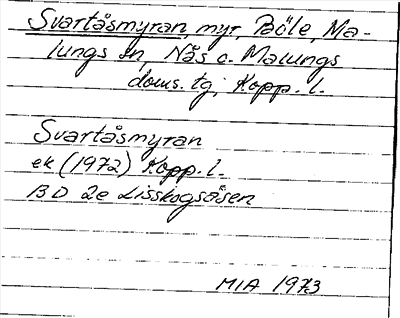 Svartåsmyran, myr, Böle, Ma-
lungs sn, Nås o. Malungs
doms. tg, Kopp. l.
Svartåsmyran
ek (1972) Kopp. l.
BD 2e Lisskogsåsen
MIA 1973